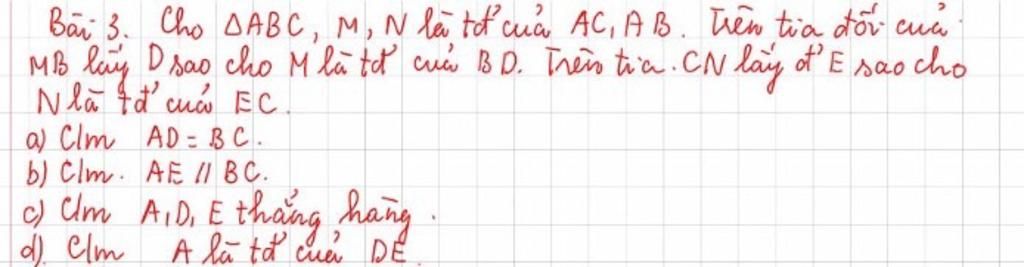 Bài 3. Cho ΔABC, M, N là tđ' của AC, AB. Trên tia đối của
MB lấy D sao cho M là tđ' của BD. Trên tia. CN lấy đ' E sao cho
N là tđ' của EC.
a) C/m AD = BC.
b) C/m. AE // BC.
c) C/m A, D, E thẳng hàng.
d). C/m A là tđ' của DE